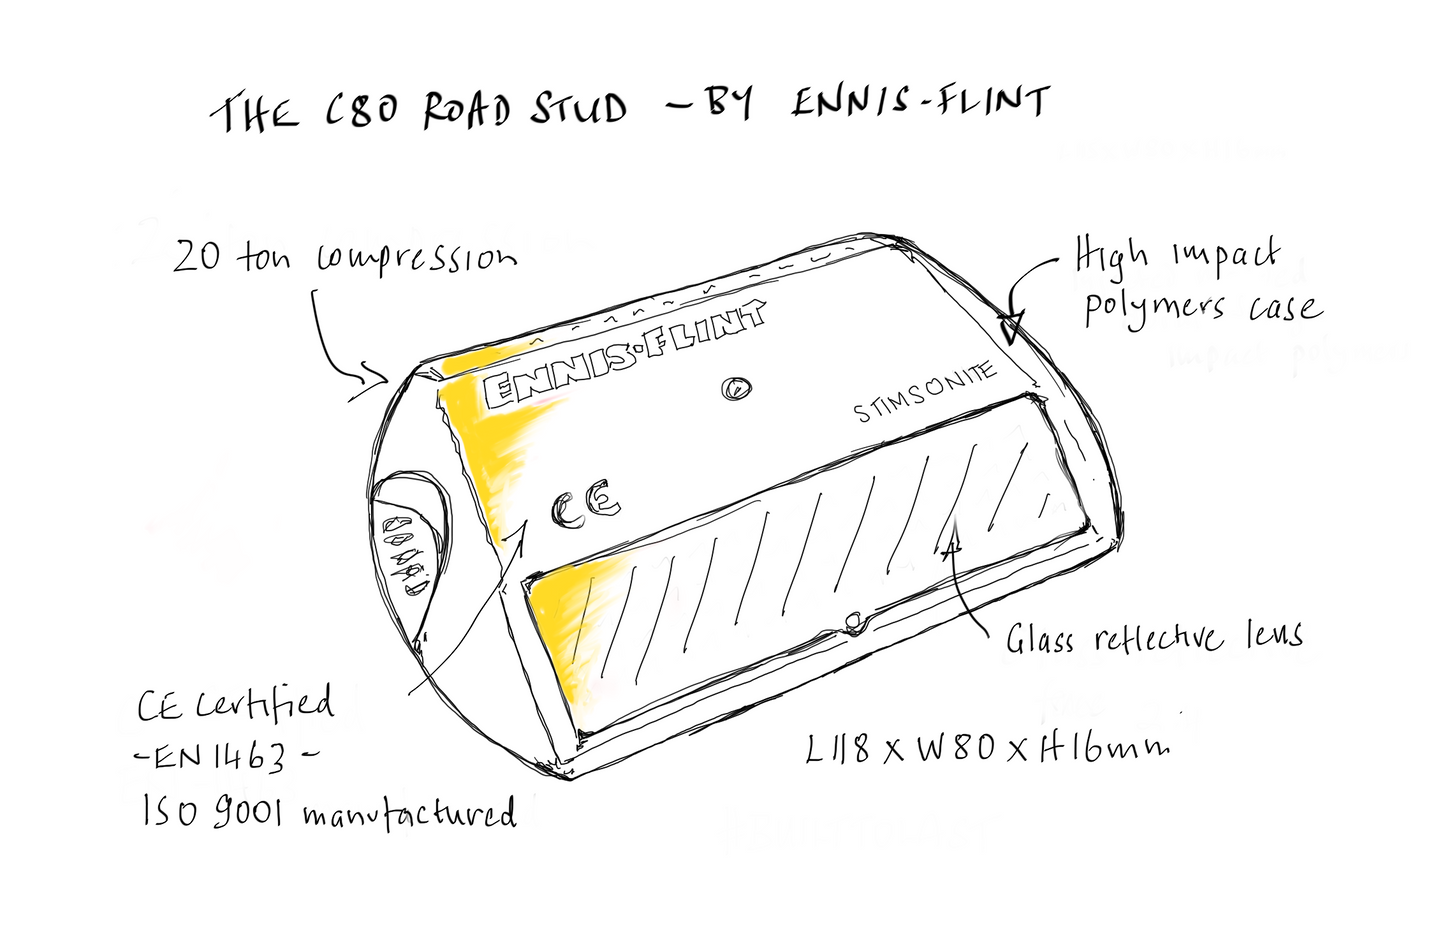 THE C80 ROAD STUD - BY ENNIS-FLINT
20 ton compression
High impact
polymers case
ENNIS·FLINT
STIMSONITE
CE
Glass reflective lens
CE certified
-EN 1463-
ISO 9001 manufactured
L118 x W80 x H16mm